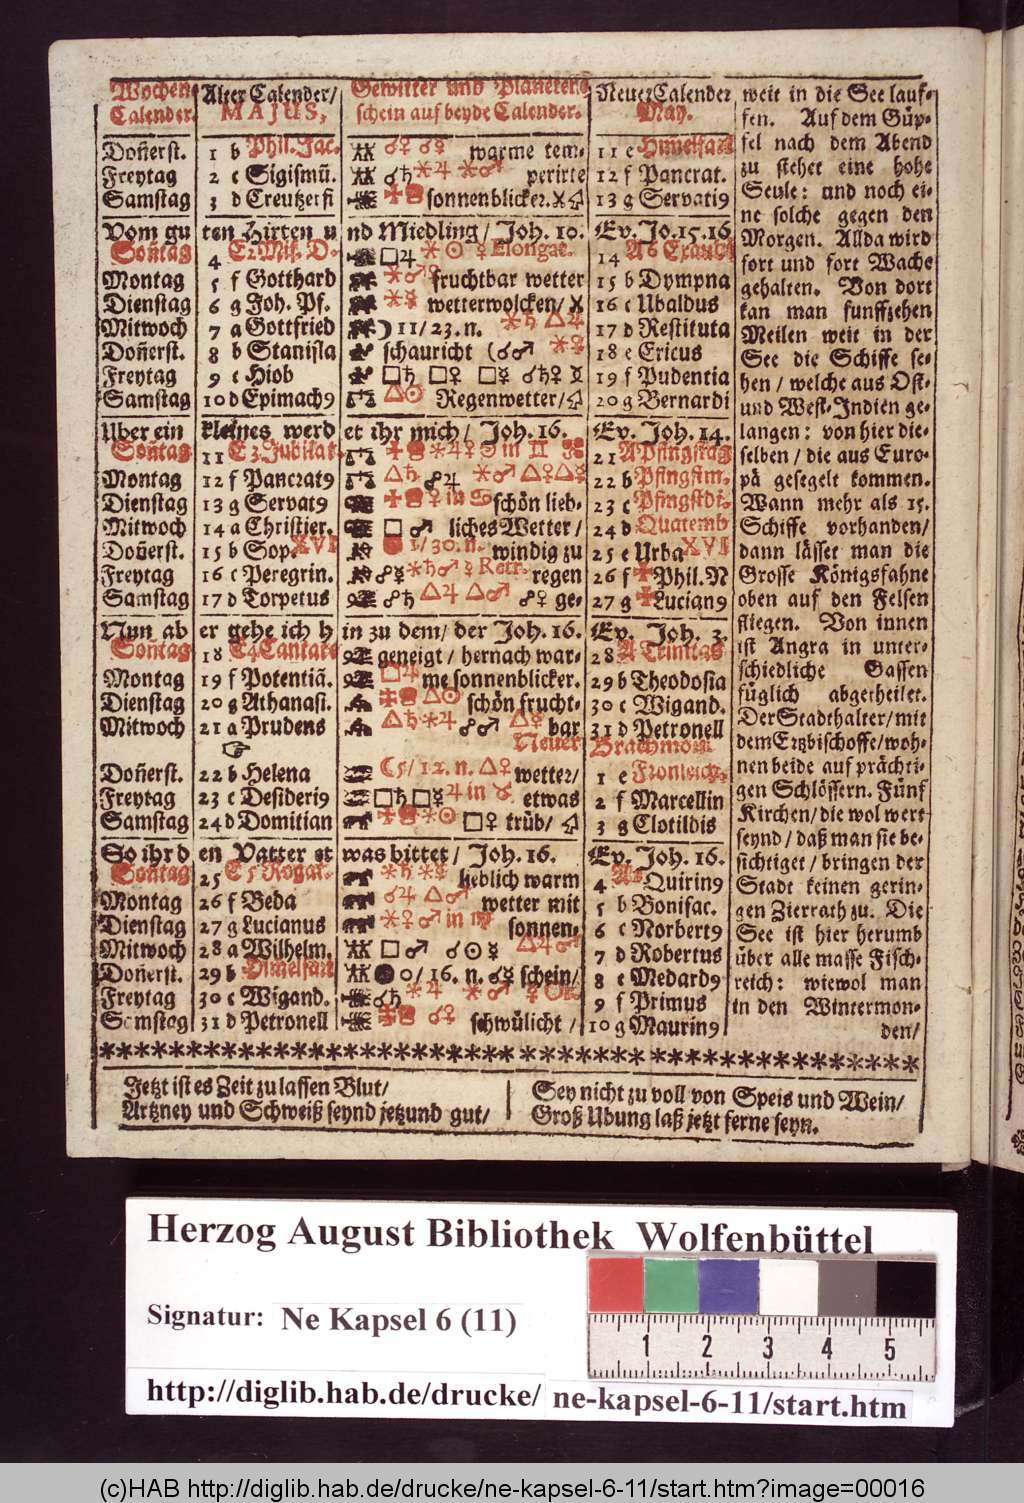 Wochen Calender. Alter Calender/ MAJUS, Gewitter und Planeten schein auf beyde Calender. Neuer Calender May.
Doñerst. 1 b Phil. Jac. ☌♀ ☌☿ warme tem- 11 e Himelfart
Freytag 2 c Sigismũ. ☌♄ ⚹♃ ⚹♂ perirte 12 f Pancrat.
Samstag 3 d Creutzerfi sonnenblicker. 13 g Servati9
Vom guten Hirten und Miedling/ Joh. 10. Ev. Jo. 15. 16.
Sontag 4 E2 Mis. D. □♃ ⚹☉ ♀ Elongat. 14 A6 Exaudi
Montag 5 f Gotthard ⚹♂ fruchtbar wetter 15 b Dympna
Dienstag 6 g Joh. Pf. ⚹☿ wetterwolcken/ 16 c Ubaldus
Mitwoch 7 a Gottfried ☽ 11/23. n. ⚹♄ △♃ 17 d Restituta
Doñerst. 8 b Stanisla schauricht (☌♂ ⚹♀ 18 e Ericus
Freytag 9 c Hiob □♄ □♀ □☿ ☌♄♀ 19 f Pudentia
Samstag 10 d Epimach9 △☉ Regenwetter/ 20 g Bernardi
Uber ein kleines werdet ihr mich/ Joh. 16. Ev. Joh. 14.
Sontag 11 E3 Jubilat. in ♊ 21 A Pfingstag
Montag 12 f Pancrat9 △♄ ☍♃ ⚹♂ △♀ △☿ 22 b Pfingstm.
Dienstag 13 g Servat9 ♀ in ♋ schön lieb- 23 c Pfingstdi.
Mitwoch 14 a Christier. □ ♂ liches Wetter/ 24 d Quatemb
Doñerst. 15 b Sop. XVI 1/30. n. windig zu 25 e Urba XVI
Freytag 16 c Peregrin. ☍☿ ⚹♄♂ ☿ Retr. regen 26 f Phil. N
Samstag 17 d Torpetus ☍♄ △♃ △♂ ☍♀ ge- 27 g Lucian9
Nun aber gehe ich hin zu dem/ der Joh. 16. Ev. Joh. 3.
Sontag 18 E4 Cantate geneigt/ hernach war- 28 A Trinitas
Montag 19 f Potentiã. □♃ me sonnenblicker. 29 b Theodosia
Dienstag 20 g Athanasi. △☉ schön frucht- 30 c Wigand.
Mitwoch 21 a Prudens △♄ ⚹♃ ☍♂ △☿ bar 31 d Petronell
☞ Neuer Brachmon
Doñerst. 22 b Helena ☾ 5/12. n. △♀ wetter/ 1 e Fronleich.
Freytag 23 c Desideri9 □♄ □☿ ♃ in ♉ etwas 2 f Marcellin
Samstag 24 d Domitian ⚹☉ □♀ trüb/ 3 g Clotildis
So ihr den Vatter etwas bittet/ Joh. 16. Ev. Joh. 16.
Sontag 25 E5 Rogat. ⚹♄ ⚹☿ lieblich warm 4 A1 Quirin9
Montag 26 f Beda ☌♃ △♂ wetter mit 5 b Bonifac.
Dienstag 27 g Lucianus ⚹♀ ♂ in ♍ sonnen- 6 c Norbert9
Mitwoch 28 a Wilhelm. □♂ ☌☉☿ △♃♂ 7 d Robertus
Doñerst. 29 b Himelfart 0/16. n. ☌☿ schein/ 8 e Medard9
Freytag 30 c Wigand. ☌♄ ⚹♃ ⚹♂ 9 f Primus
Samstag 31 d Petronell ☌♀ schwülicht/ 10 g Maurin9
weit in die See lauf-
fen. Auf dem Güp-
fel nach dem Abend
zu stehet eine hohe
Seule: und noch ei-
ne solche gegen den
Morgen. Allda wird
fort und fort Wache
gehalten. Von dort
kan man funffzehen
Meilen weit in der
See die Schiffe se-
hen/ welche aus Ost-
und West-Indien ge-
langen: von hier die-
selben/ die aus Euro-
pä gesegelt kommen.
Wann mehr als 15.
Schiffe vorhanden/
dann lässet man die
Grosse Königsfahne
oben auf den Felsen
fliegen. Von innen
ist Angra in unter-
schiedliche Gassen
füglich abgetheilet.
Der Stadthalter/ mit
dem Ertzbischoffe/ woh-
nen beide auf prächti-
gen Schlössern. Fünf
Kirchen/ die wol wert
seynd/ daß man sie be-
sichtiget/ bringen der
Stadt keinen gerin-
gen Zierrath zu. Die
See ist hier herumb
über alle masse Fisch-
reich: wiewol man
in den Wintermon-
den/
Jetzt ist es Zeit zu lassen Blut/
Artzney und Schweiß seynd jetzund gut/
Sey nicht zu voll von Speis und Wein/
Groß Ubung laß jetzt ferne seyn.
Herzog August Bibliothek Wolfenbüttel
Signatur: Ne Kapsel 6 (11)
1 2 3 4 5
http://diglib.hab.de/drucke/ ne-kapsel-6-11/start.htm
(c)HAB http://diglib.hab.de/drucke/ne-kapsel-6-11/start.htm?image=00016